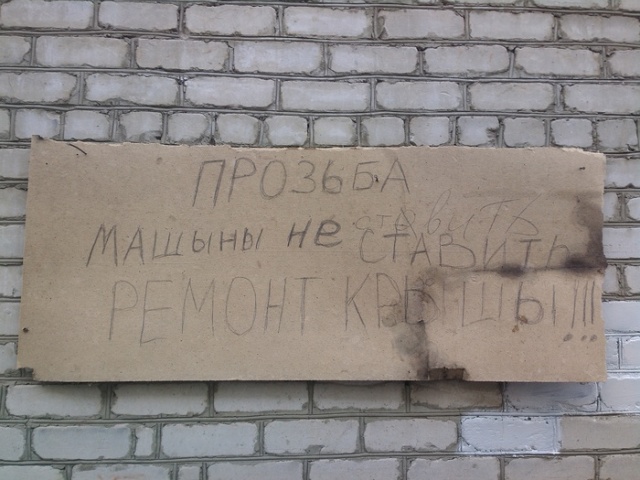 ПРОЗЬБА
МАШЫНЫ не СТАВИТЬ
ставить
РЕМОНТ КРЫШЫ!!!